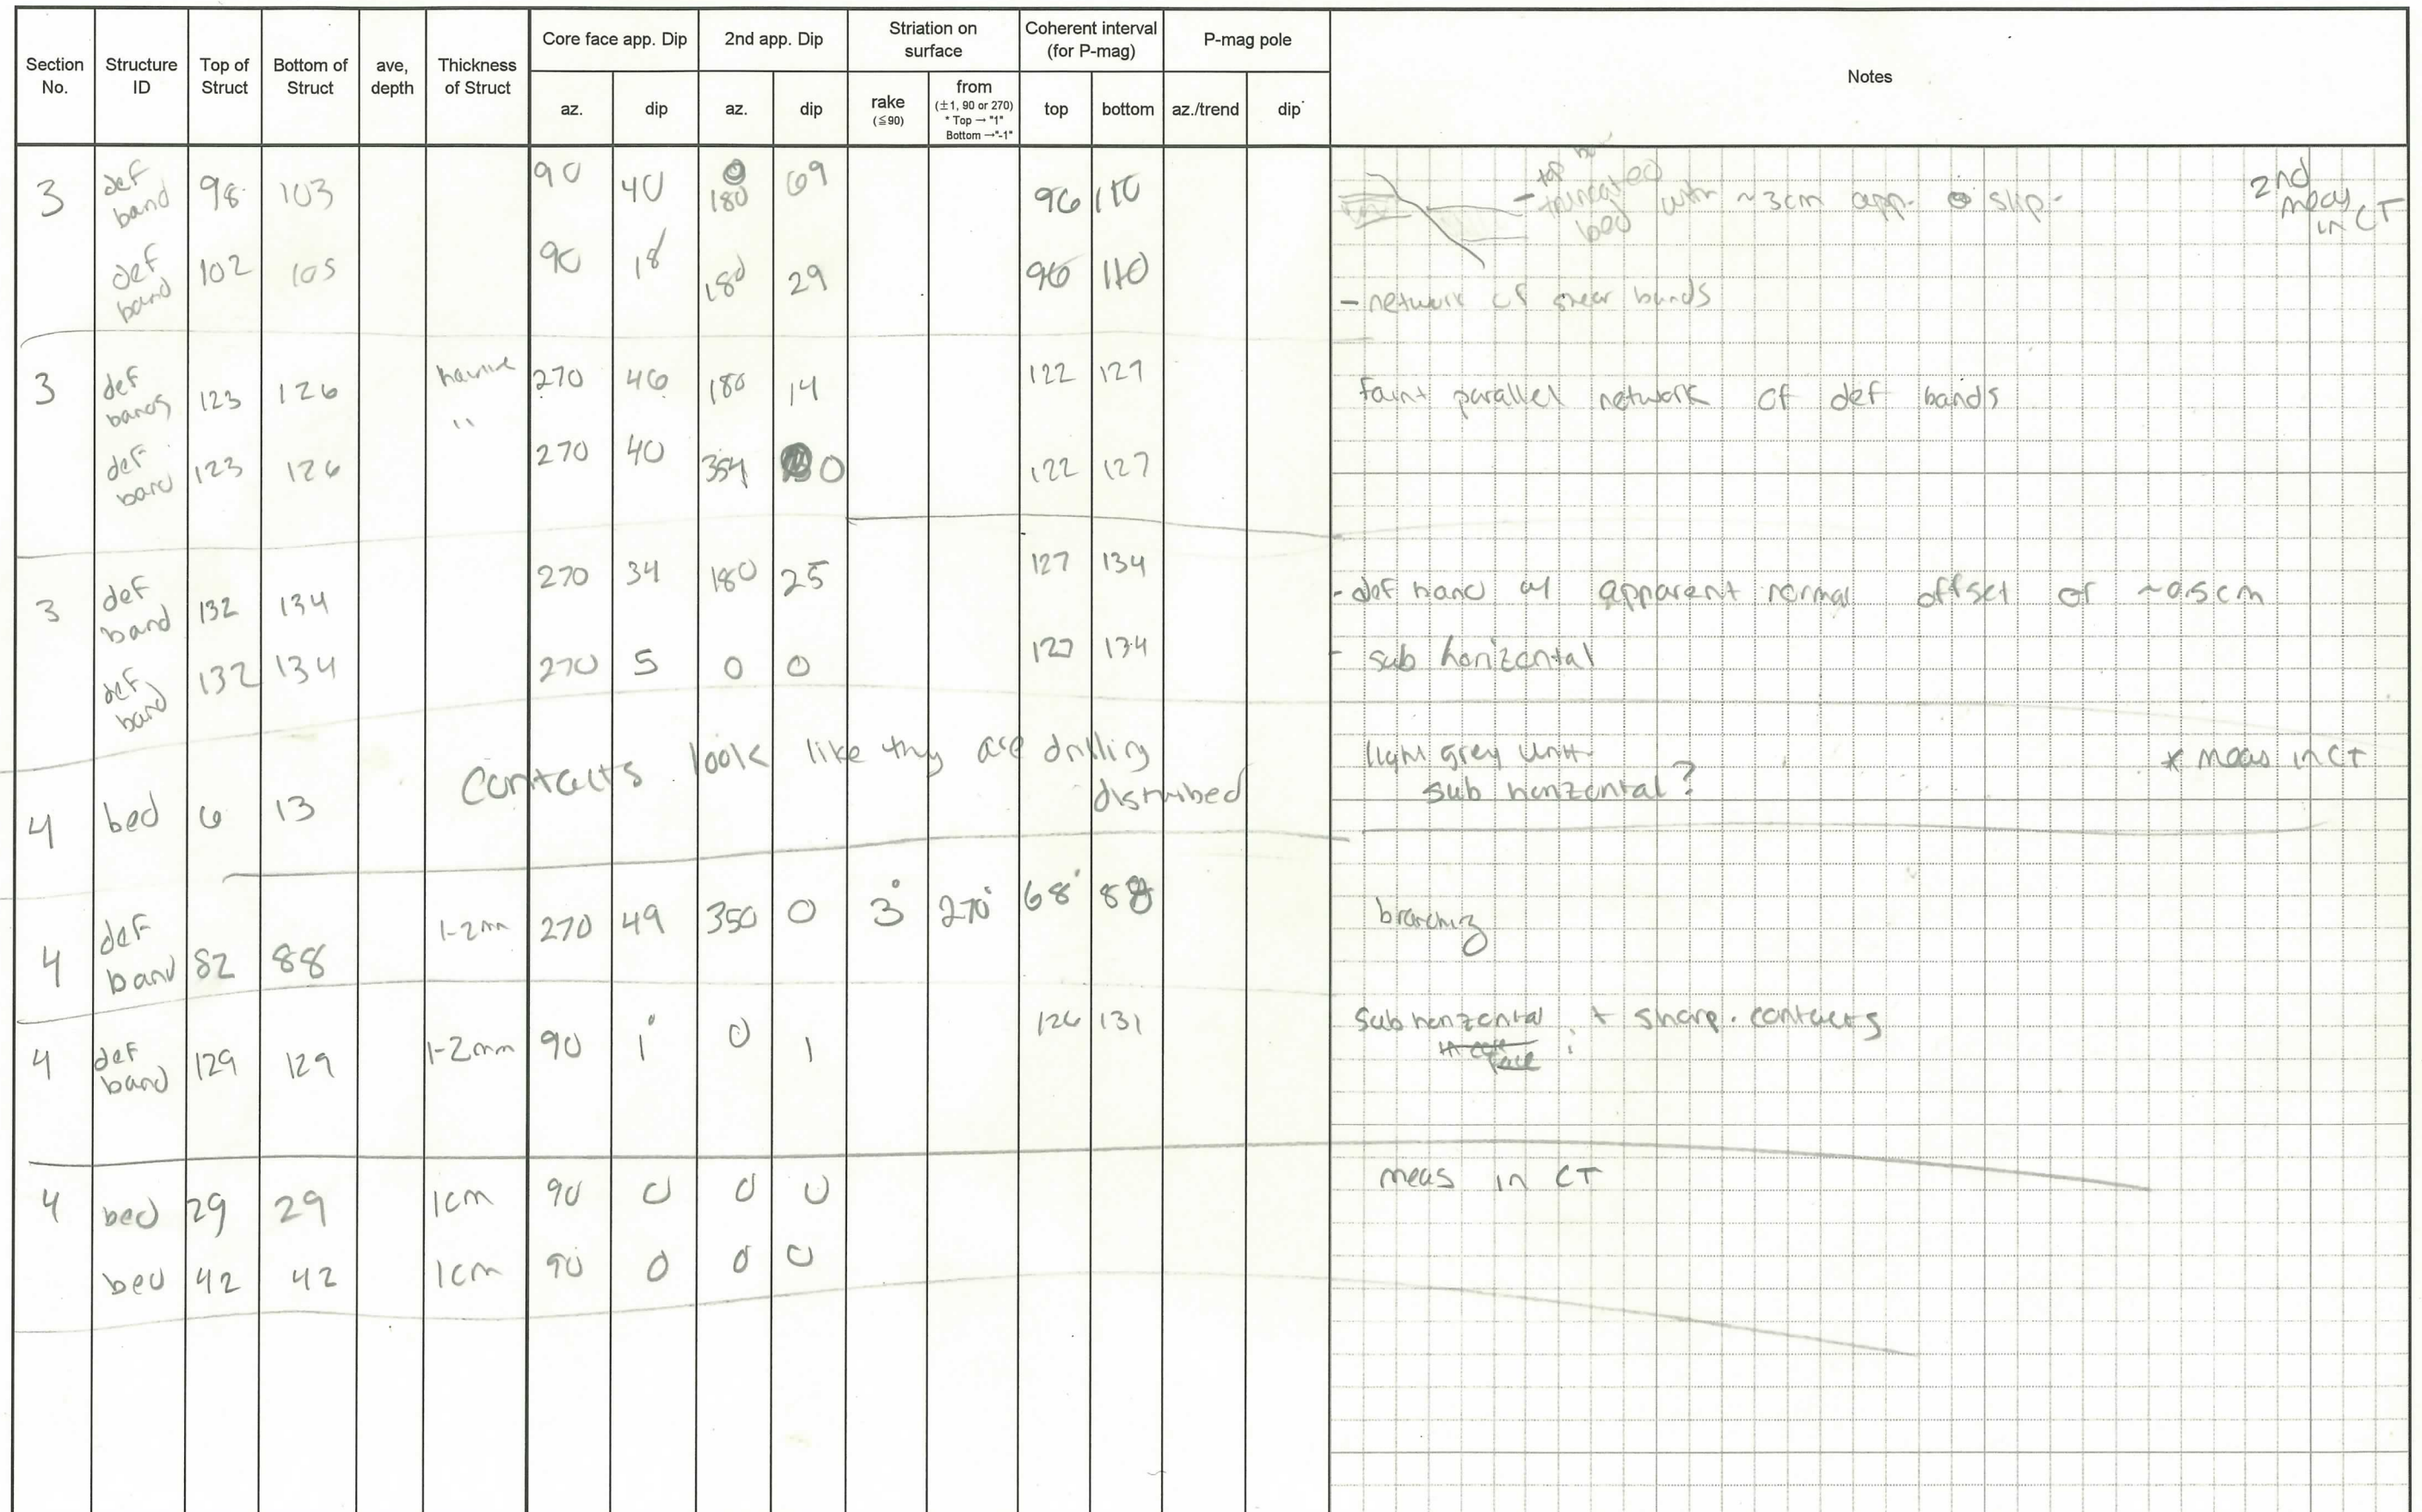 Section No. Structure ID Top of Struct Bottom of Struct ave, depth Thickness of Struct Core face app. Dip 2nd app. Dip Striation on surface Coherent interval (for P-mag) P-mag pole Notes
az. dip az. dip rake (≦90) from (±1, 90 or 270) * Top → "1" Bottom → "-1" top bottom az./trend dip
3 def band 98 103 90 40 180 69 96 110 - top truncated bed with ~3cm app. slip. 2nd meas in CT
def band 102 105 90 18 180 29 96 110 - network of shear bands
3 def bands 123 126 270 46 180 14 122 127 faint parallel network of def bands
def band 123 126 " 270 40 354 0 122 127
3 def band 132 134 270 34 180 25 127 134 - def band w/ apparent normal offset of ~0.5cm
def band 132 134 270 5 0 0 127 134 - sub horizontal
4 bed 6 13 Contacts look like thy are drilling disturbed light grey unit sub horizontal? * meas in CT
4 def band 82 88 1-2mm 270 49 350 0 3° 270° 68 88 branching
4 def band 129 129 1-2mm 90 1° 0 1 126 131 Sub horizontal + sharp contacts
4 bed 29 29 1cm 90 0 0 0 meas in CT
bed 42 42 1cm 90 0 0 0